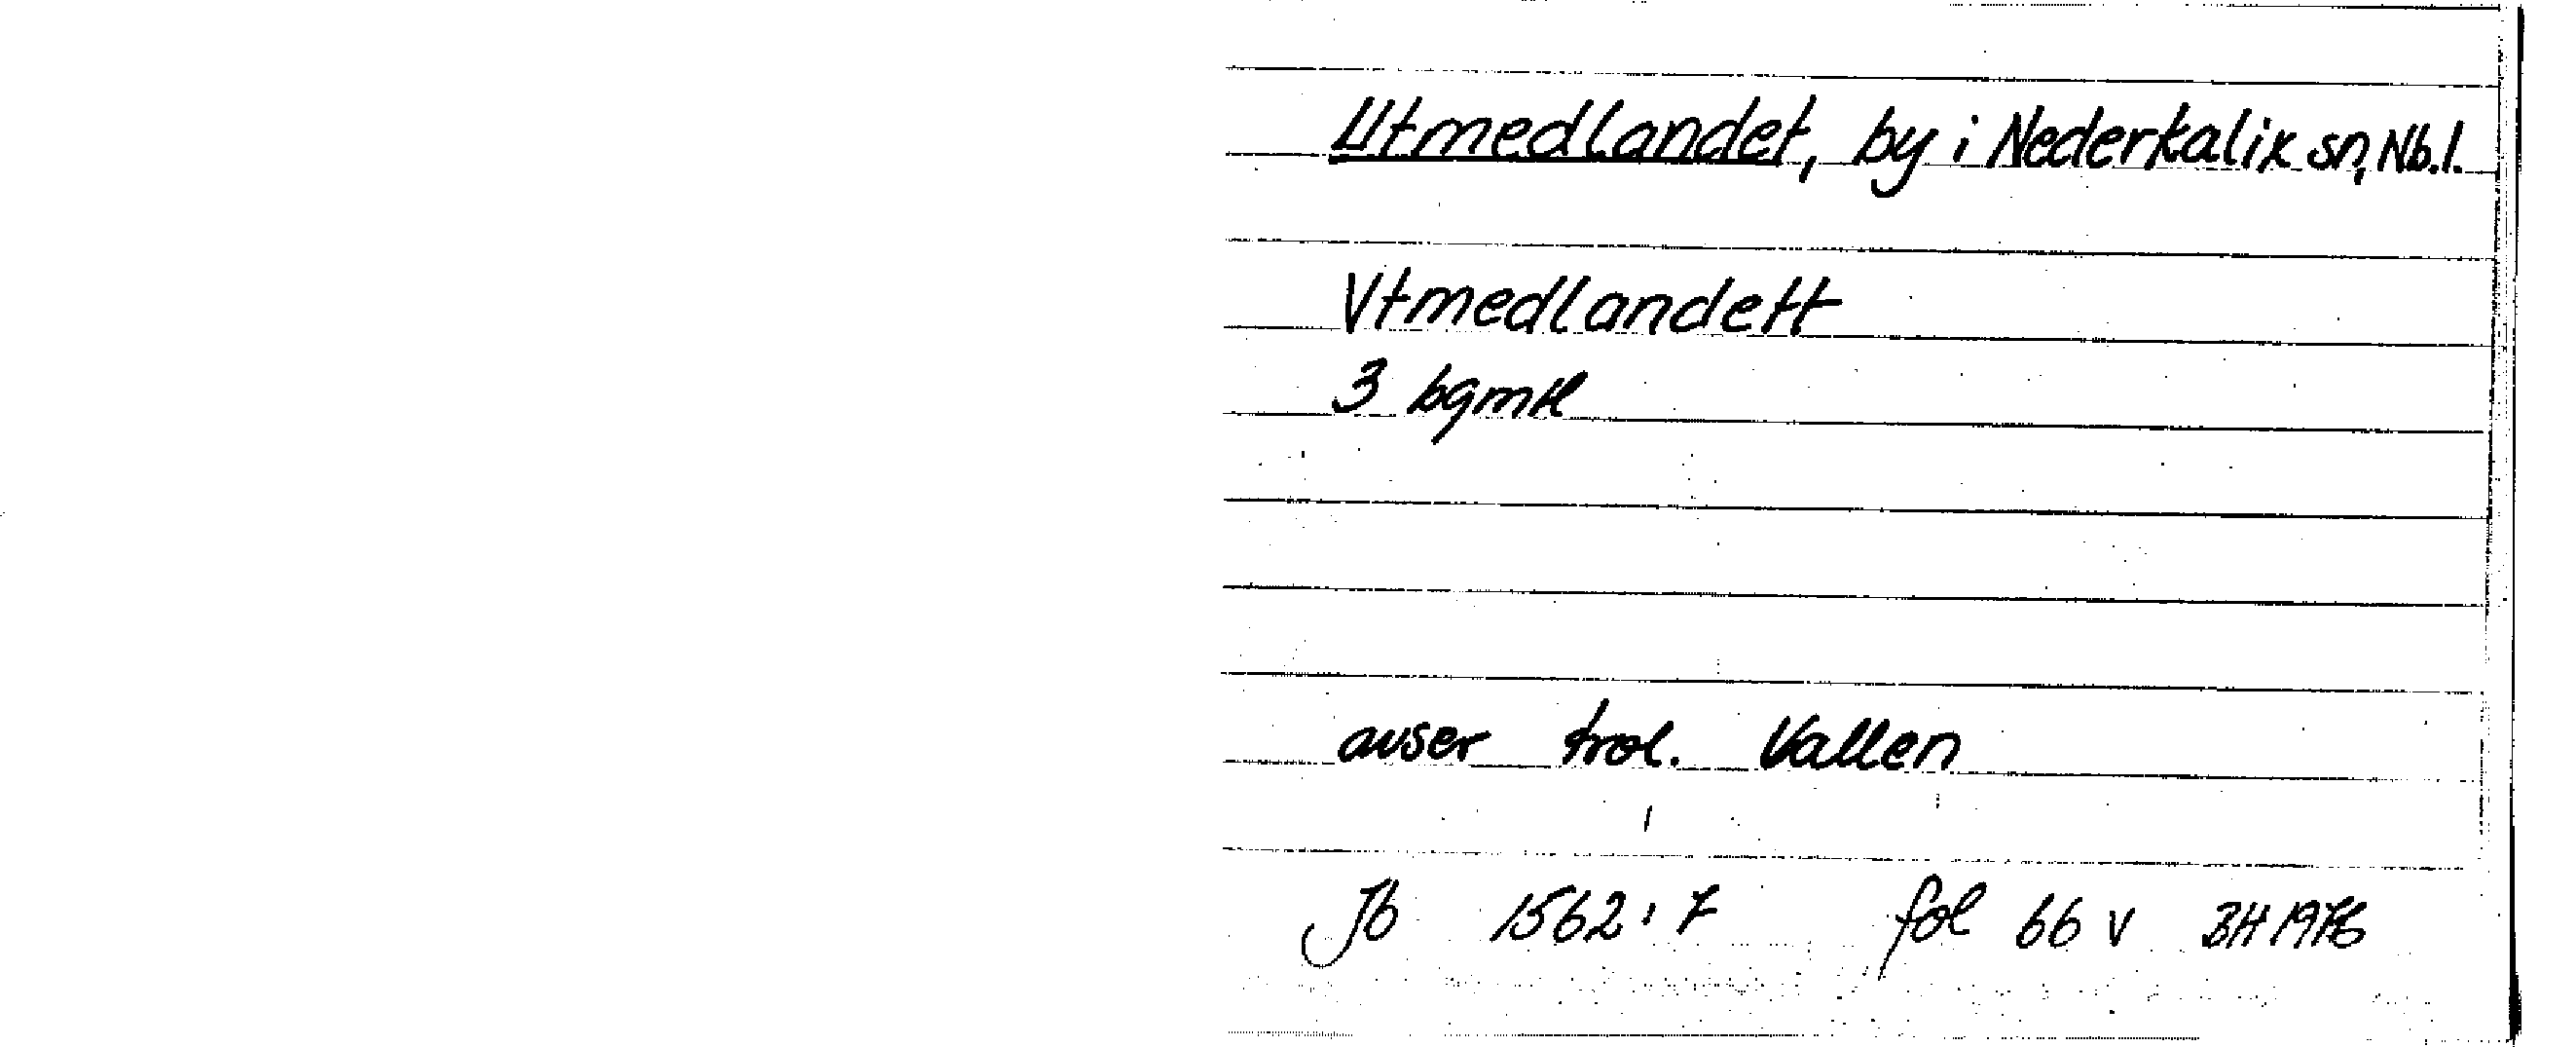 Utmedlandet, by i Nederkalix sn, Nb.l.
Vtmedlandett
3 bgmtl
avser trol. Vallen
Jb 1562:7 fol 66 v BH 1976